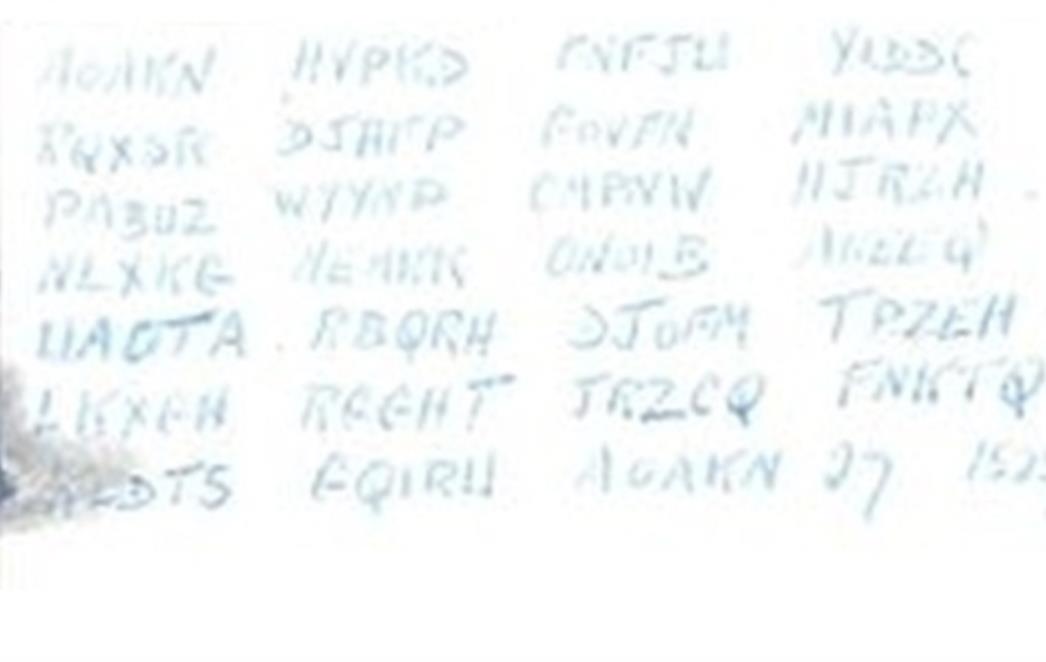 AOAKN HVPKD FNFJU YIDDC
RQXSR DJHFP GOVFN MIAPX
PABUZ WYYNP CMPNW HJRZH
NLXKG MEMKK ONOIB AKEEQ
UAOTA RBQRH DJOFM TPZEH
LKXGH RGGHT JRZCQ FNKTQ
DTS EQIRU AOAKN 27